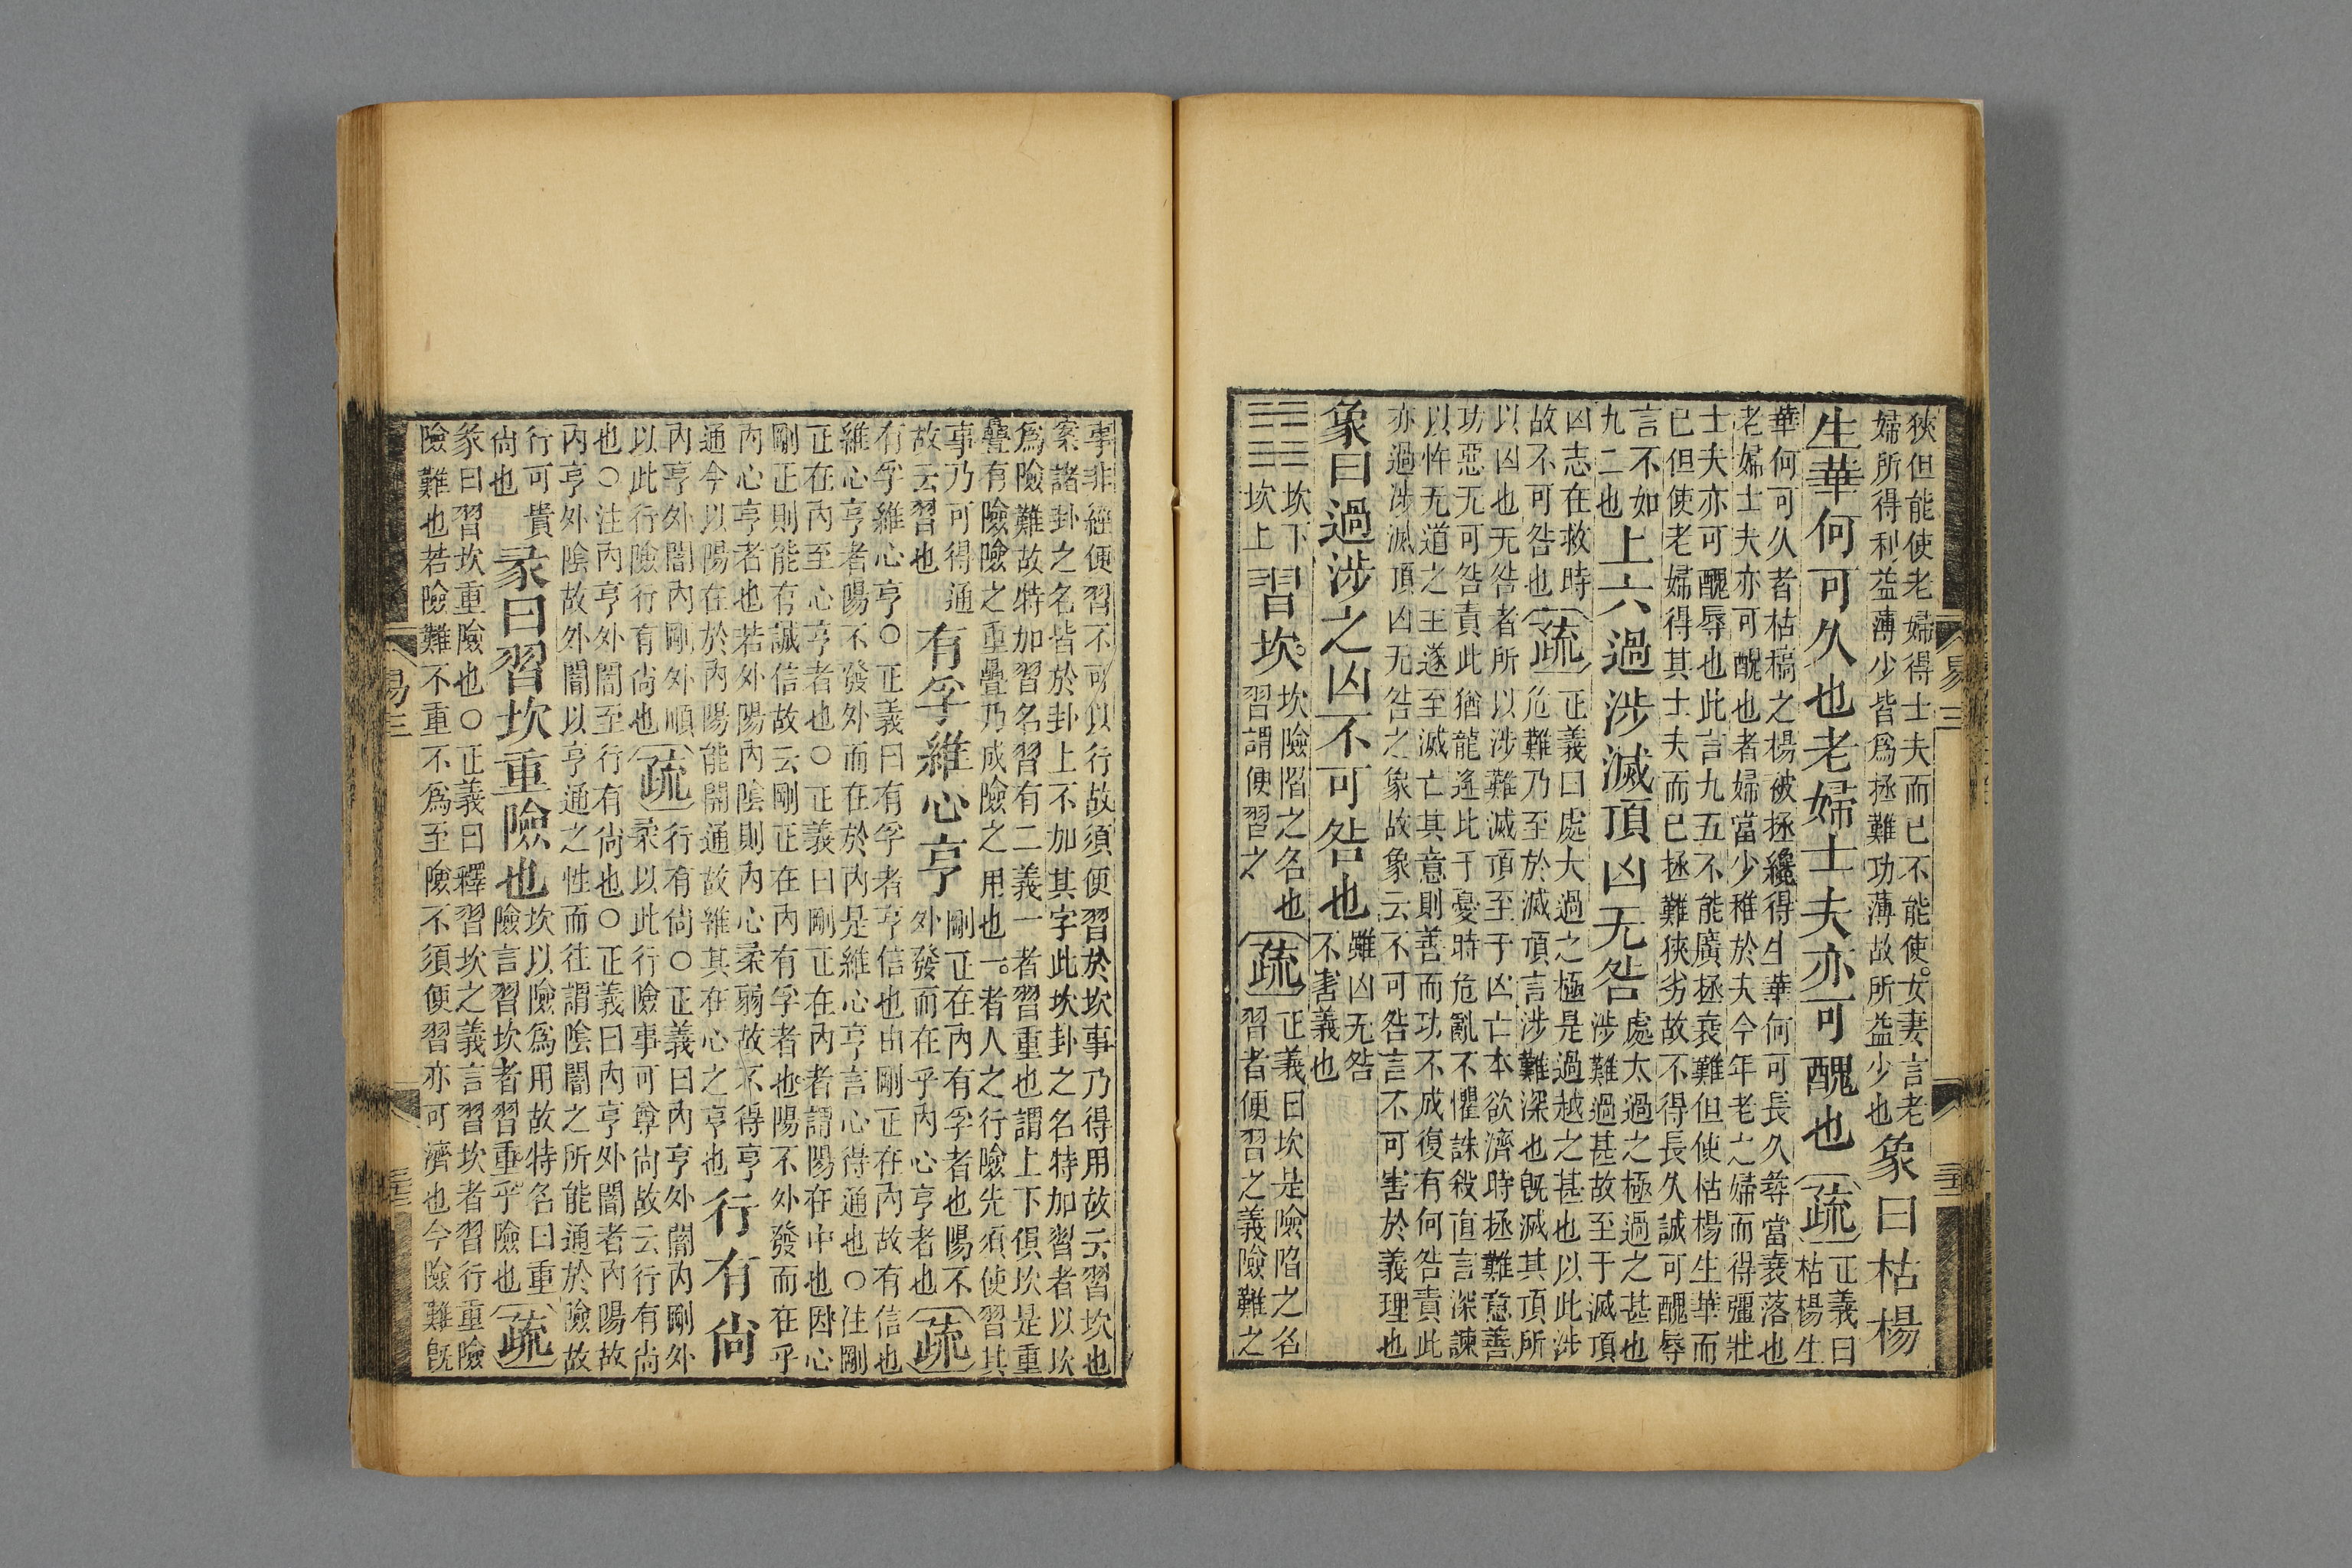 狹但能使老婦得士夫而已不能使女妻言老
婦所得利益薄少皆爲拯難功薄故所益少也
象曰枯楊
生華何可久也老婦士夫亦可醜也
疏
正義曰
枯楊生
華何可久者枯稿之楊被拯纔得生華何可長久尋當衰落也
老婦士夫亦可醜也者婦當少稚於夫今年老之婦而得彊壯
士夫亦可醜辱也此言九五不能廣拯衰難但使枯楊生華而
已但使老婦得其士夫而已拯難狹劣故不得長久誠可醜辱
言不如
九二也
上六過涉滅頂凶无咎
處太過之極過之甚也
涉難過甚故至于滅頂
凶志在救時
故不可咎也
疏
正義曰處大過之極是過越之甚也以此涉
危難乃至於滅頂言涉難深也旣滅其頂所
以凶也无咎者所以涉難滅頂至于凶亡本欲濟時拯難意善
功惡无可咎責此猶龍逄比干憂時危亂不懼誅殺直言深諫
以忤无道之主遂至滅亡其意則善而功不成復有何咎責此
亦過涉滅頂凶无咎之象故象云不可咎言不可害於義理也
象曰過涉之凶不可咎也
雖凶无咎
不害義也
坎下
坎上
習坎
坎險陷之名也
習謂便習之
疏
正義曰坎是險陷之名
習者便習之義險難之
易三
事非經便習不可以行故須便習於坎事乃得用故云習坎也
案諸卦之名皆於卦上不加其字此坎卦之名特加習者以坎
爲險難故特加習名習有二義一者習重也謂上下俱坎是重
疊有險險之重疊乃成險之用也一者人之行險先須使習其
事乃可得通
故云習也
有孚維心亨
剛正在內有孚者也陽不
外發而在乎內心亨者也
疏
有孚維心亨○正義曰有孚者亨信也由剛正在內故有信也
維心亨者陽不發外而在於內是維心亨言心得通也○注剛
正在內至心亨者也○正義曰剛正在內者謂陽在中也因心
剛正則能有誠信故云剛正在內有孚者也陽不外發而在乎
內心亨者也若外陽內陰則內心柔弱故不得亨
通今以陽在於內陽能開通故維其在心之亨也
行有尚
內亨外闇內剛外順
以此行險行有尚也
疏
行有尚○正義曰內亨外闇內剛外
柔以此行險事可尊尚故云行有尚
也○注內亨外闇至行有尚也○正義曰內亨外闇者內陽故
內亨外陰故外闇以亨通之性而往謂陰闇之所能通於險故
行可貴
尚也
彖曰習坎重險也
坎以險爲用故特名曰重
險言習坎者習重乎險也
疏
彖曰習坎重險也○正義曰釋習坎之義言習坎者習行重險
險難也若險難不重不爲至險不須便習亦可濟也今險難旣
易三